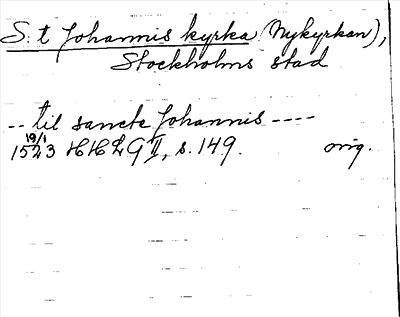 S:t Johannis kyrka (Nykyrkan),
Stockholms stad
-- til sancte Johannis ----
19/1
1523 HH L G II, s. 149. orig.